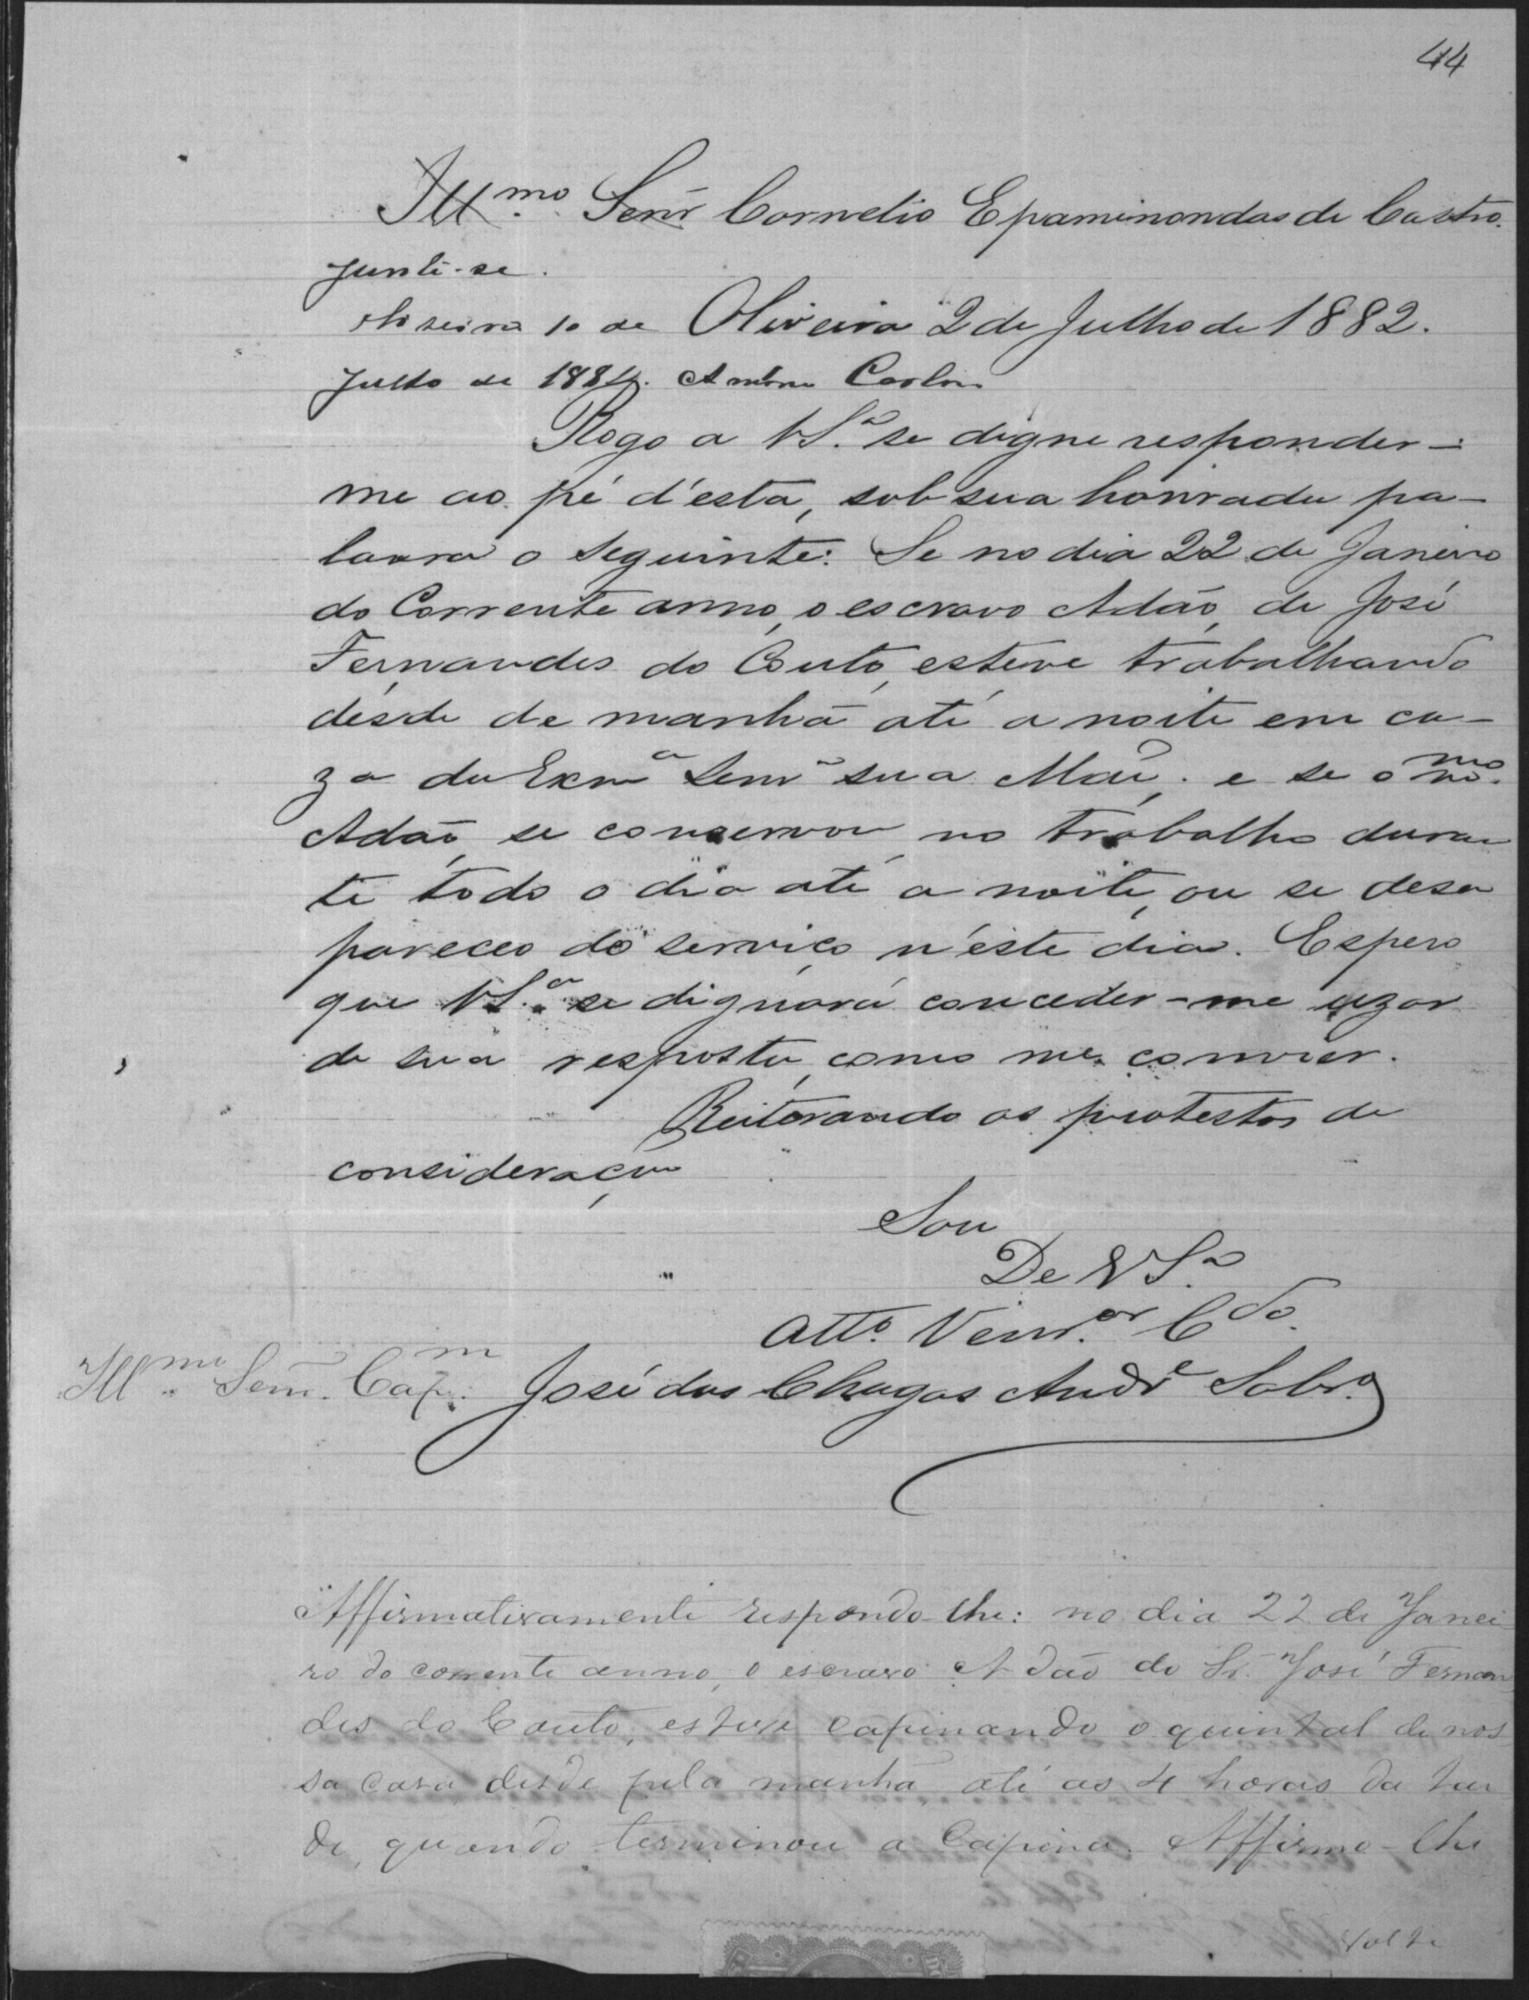 44
Illmo. Senr Cornelio Epaminondas de Castro.
Junte-se.
Oliveira 10 de
Oliveira 2 de Julho de 1882.
Julho de 1884.
Rogo a VSa. se digne responder-
me ao pé d'esta, sob sua honrada pa-
lavra o seguinte: Se no dia 22 de Janeiro
do Corrente anno, o escravo Adão, de José
Fernandes do Couto, esteve trabalhando
désde de manhã até a noite em ca-
za da Exma Senra sua Mãi; e se o mmo.
Adão, se conservou no trabalho duran
te todo o dia até a noite, ou se desa
pareceo do serviço n'éste dia. Espero
que VSa. se dignará conceder-me uzar
de sua resposta, como me convier.
Reiterando os protestos de
consideração
Sou
De VSa.
Atto. Venror. Cdo.
Illmo. Senr. Capm.
José das Chagas Andre Sobro.
Affirmativamente respondo-lhe: no dia 22 de Janei
ro do corrente anno, o escravo Adão do Sr. José Fernan
des do Couto, esteve capinando o quintal de nos
sa casa, desde pela manhã, até as 4 horas da tar
de, quando terminou a Capina. Affirmo-lhe
Volte